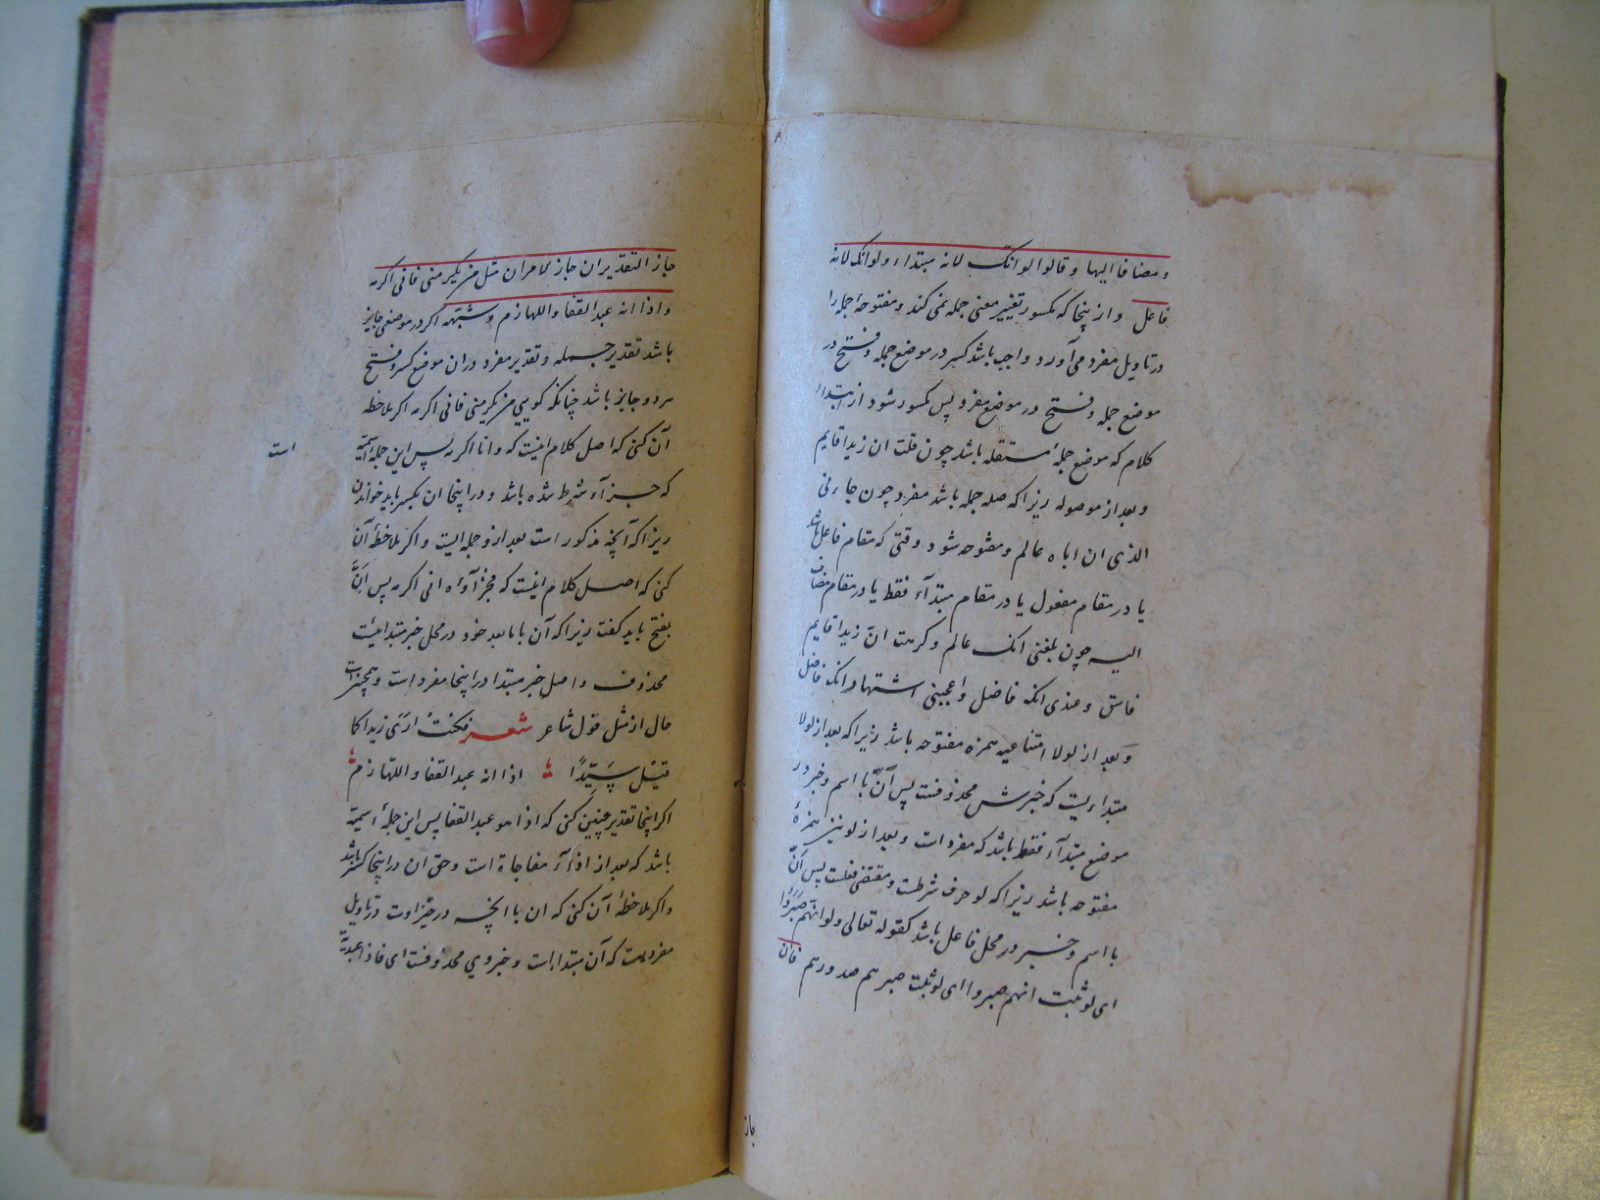 و مضافا الیها و قالوا لوانک لانه مبتداء و لوانک لانه
فاعل و از ینجا که مکسور تغییر معنی جمله نمی کند و مفتوحهٔ جمله را
در تاویل مفرد می آورد واجب باشد کسر در موضع جمله و فتح در
موضع جمله و فتح در موضع مفرد پس مکسور شود از ابتداء
کلام که موضع جملهٔ مستقله باشد چون قلت ان زیدا قایم
و بعد از موصوله زیرا که صله جمله باشد مفرد چون جاءنی
الذی ان اباه عالم و مفتوحه شود وقتی که مقام فاعل باشد
یا در مقام مفعول یا در مقام مبتدآء فقط یا در مقام مضاف
الیه چون بلغنی انک عالم و کرهت انّ زیدا قایم
فاسق و عندی انک فاضل و اعجبنی اشتهار انک فاضل
و بعد از لولا امتناعیه همزه مفتوحه باشد زیرا که بعد از لولا
مبتداءیست که خبرش محذوفست پس انّ با اسم و خبر در
موضع مبتدآء فقط باشد که مفرد است و بعد از لو نیز همزهٔ
مفتوحه باشد زیرا که لو حرف شرطست و مقتضی فعلست پس انّ
با اسم و خبر در محل فاعل باشد کقوله تعالی ولو انهم صبروا
ای لو ثبت انهم صبروا ای لو ثبت صبرهم صدورهم فان
جاز
جاز التقدیران جاز الامران مثل من یکرمنی فانی اکرمه
و اذا انه عبد القفا و اللهازم و شبهه اگر در موضعی جایز
باشد تقدیر جمله و تقدیر مفرد در ان موضع کسر و فتح
هر دو جایز باشد چنانکه گویی من یکرمنی فانی اکرمه اگر ملاحظه
آن کنی که اصل کلام اینست که و انا اکرمه پس این جملهٔ اسمیه
است
که جزآء شرط شده باشد و در اینجا ان بکسر باید خواندن
زیرا که آنچه مذکور است بعد از و جمله ایست و اگر ملاحظهٔ آن
کنی که اصل کلام اینست که فجزآؤه انی اکرمه پس انّ
بفتح باید گفت زیرا که آن با ما بعد خود در محل خبر مبتدائیست
محذوف و اصل خبر مبتدا در اینجا مفرد است و همچنین است
حال از مثل قول شاعر شعر فکنت اری زیدا کما
قیل سیّدًا اذا انه عبد القفا و اللهازم
اگر اینجا تقدیر چنین کنی که اذا هو عبد القفا پس این جملهٔ اسمیه
باشد که بعد از اذآء مفاجاة است و حق ان در اینجا کسر باشد
و اگر ملاحظهٔ آن کنی که ان با آنچه در حیّز اوست در تاویل
مفردیست که آن مبتداءاست و خبر وی محذوفست ای فاذا عبدیّة